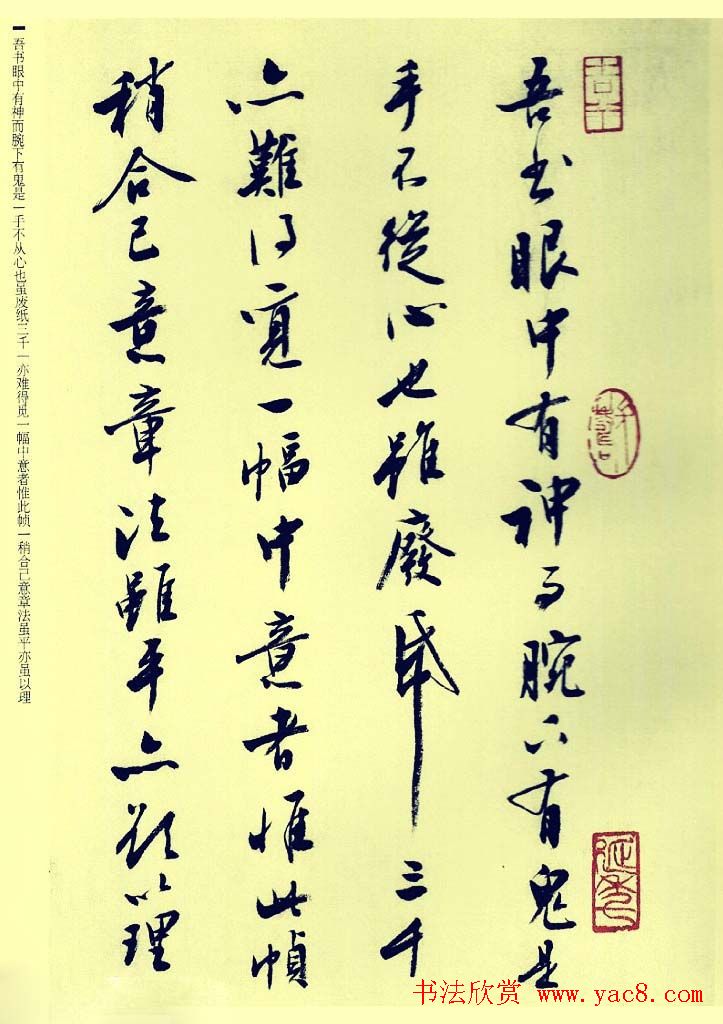 吾书眼中有神而腕下有鬼是
手不從心也雖廢紙三千
亦難得覓一幅中意者惟此幀
稍合己意章法雖平亦以理
吾书眼中有神而腕下有鬼是一手不从心也虽废纸三千一亦难得觅一幅中意者惟此帧一稍合己意章法虽平亦虽以理
书法欣赏 www.yac8.com